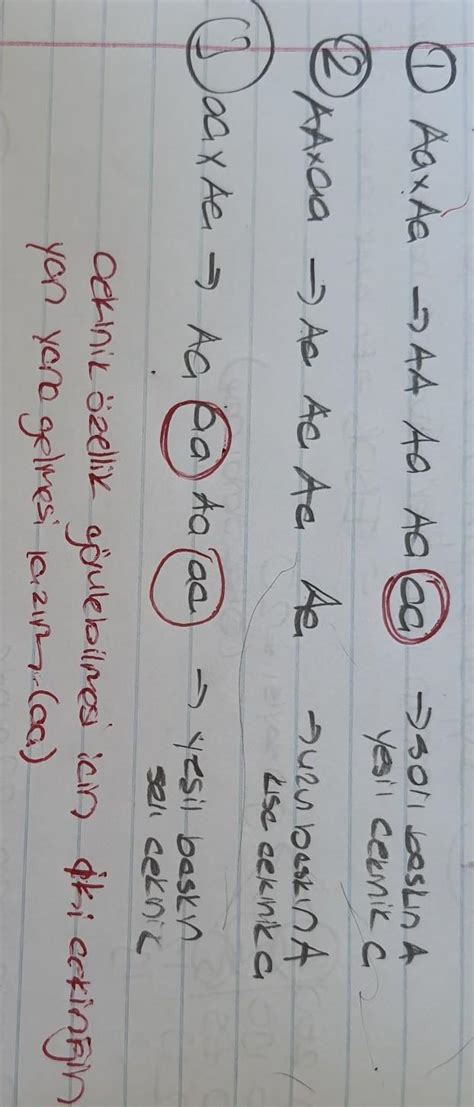 ① Aa x Aa → AA Aa Aa aa → sarı baskın A
yeşil çekinik a
② AA x aa → Aa Aa Aa Aa → uzun baskın A
kısa çekinik a
③ aa x Aa → Aa aa Aa aa → yeşil baskın
sarı çekinik
çekinik özellik görülebilmesi için iki çekiniğin
yan yana gelmesi lazım (aa)